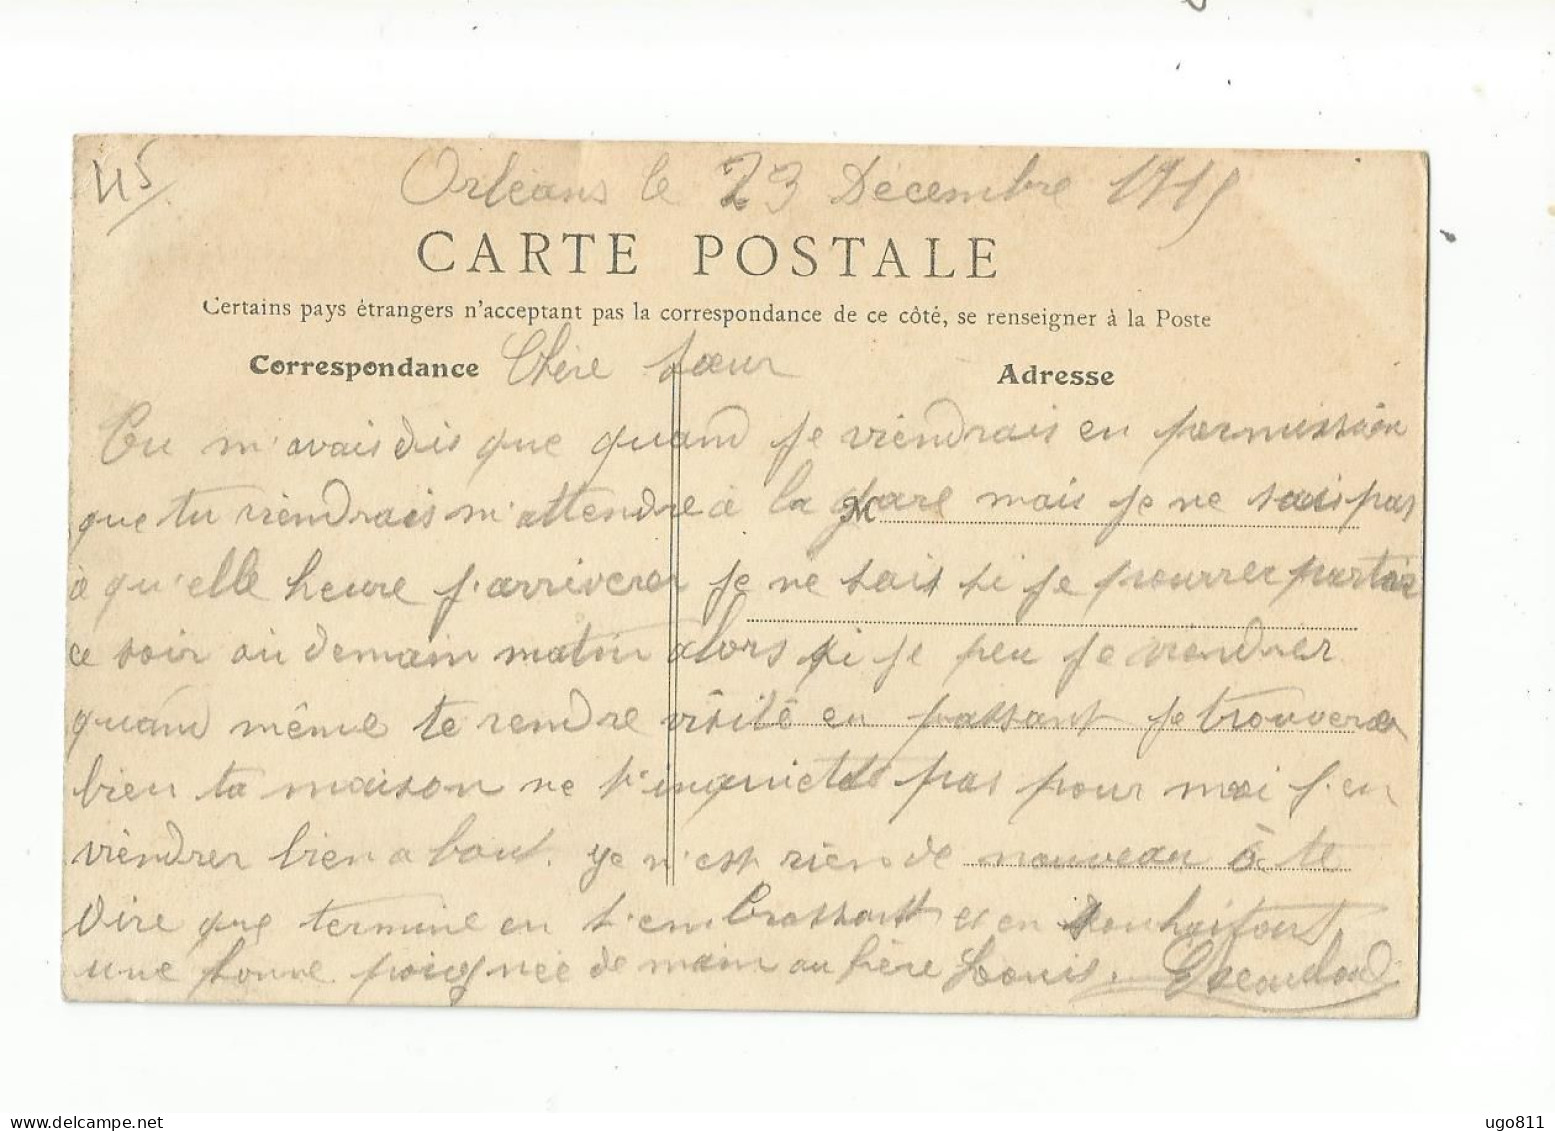 45
Orléans le 23 Décembre 1915
CARTE POSTALE
Certains pays étrangers n'acceptant pas la correspondance de ce côté, se renseigner à la Poste
Correspondance Chère sœur Adresse
Tu m'avais dis que quand je viendrais en permission
que tu viendrais m'attendre à la gare mais je ne sais pas
M
à qu'elle heure j'arriverer je ne sait si je pourrer partir
ce soir ou demain matin alors si je peu je viendrer
quand même te rendre visite en passant je trouverer
bien ta maison ne t'inquiete pas pour moi j'en
viendrer bien a bout. je n'est rien de nouveau à te
dire que termine en t'embrassant et en souhaitant
une bonne poignée de main au frère Louis.
www.delcampe.net
ugo811